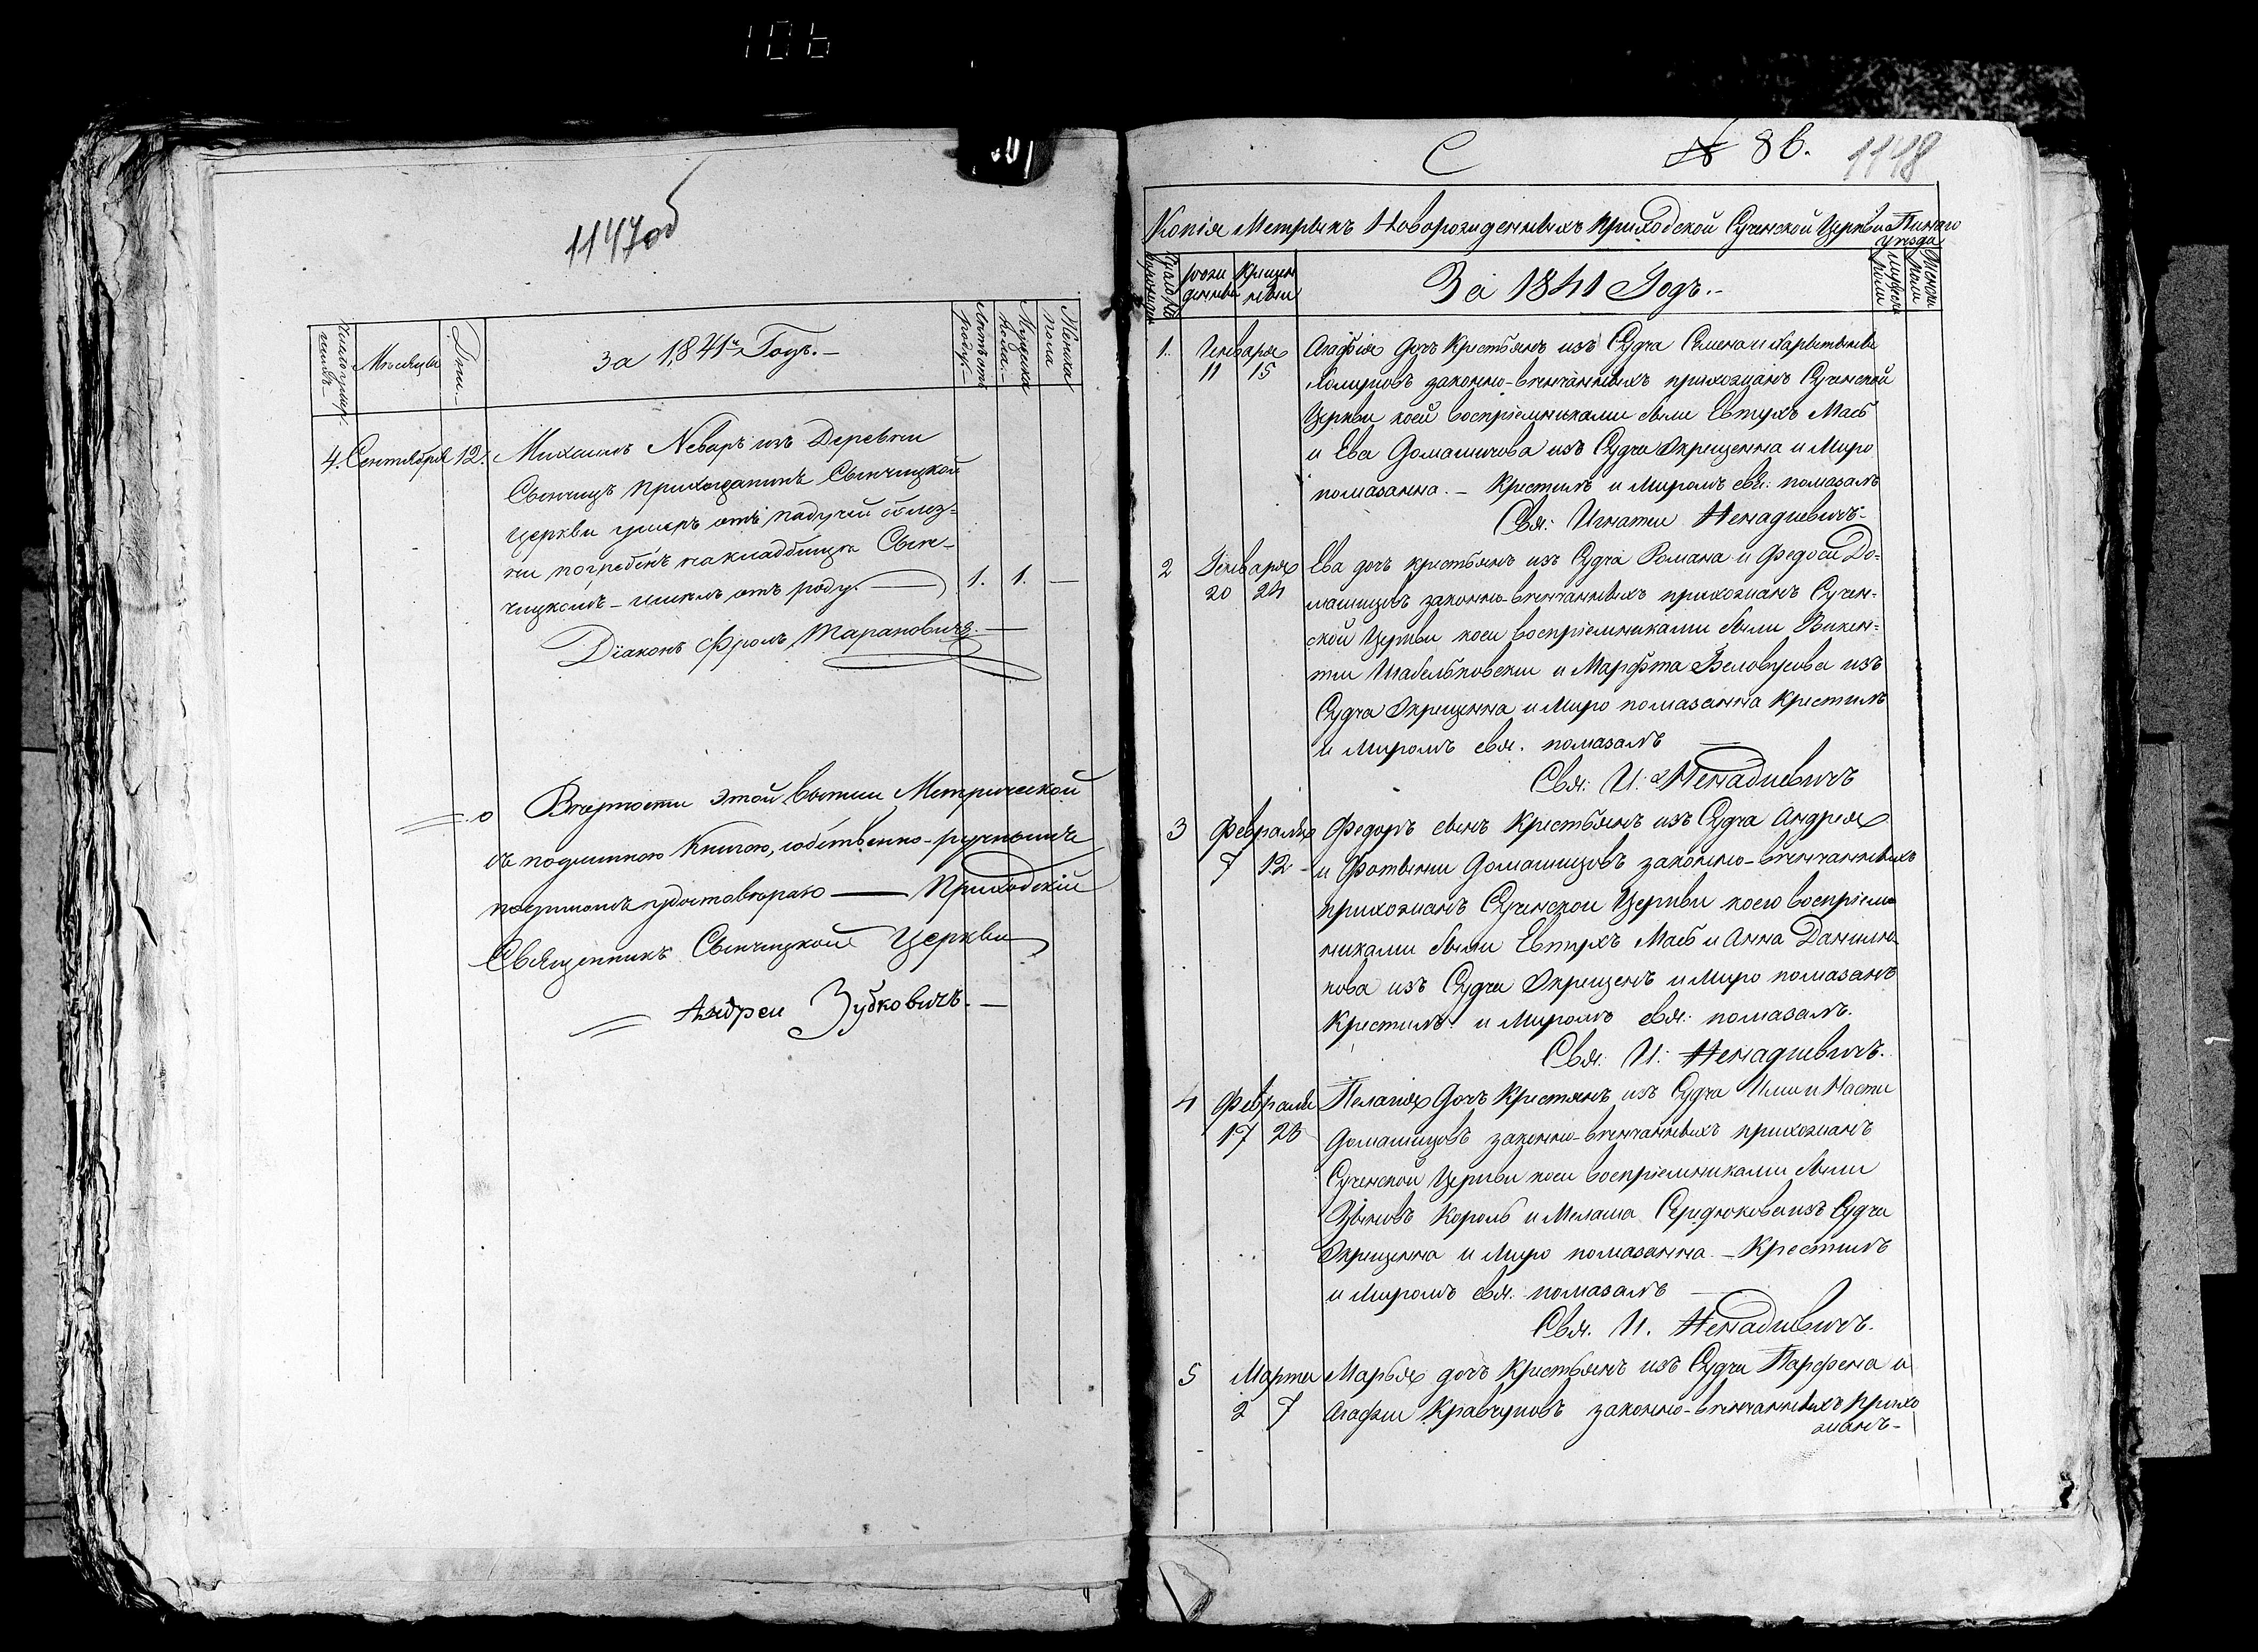 106
1147об
За 1841й Годъ.
Число умер-
шихъ
Мѣсяцы
Дни
Лѣтъ отъ роду
Мужеска пола
Женска пола
4. Сентября 12. Михаилъ Неваръ изъ Деревни
Сынчицъ прихожанинъ Сынчицкой
Церкви умеръ отъ падучей болез-
ни погребенъ на кладбищѣ Сын-
чицкомъ — имѣлъ отъ роду. — 1. 1. —
Діаконъ Фролъ Тарановичъ. —
Въ вѣрности этой выписи Метрической
съ подлинною Книгою, собственно-ручнымъ
подписомъ удостовѣряю — Приходскій
Священникъ Сынчицкой Церкви
Андреи Зубковичъ. —
С № 86. 1148
Копія Метрыкъ Новорожденныхъ Приходской Судченской Церкви Пинаго
Уѣзда
рож
денны
Крещен
ныи
За 1841 Годъ. —
Мужеска пола
Женска пола
1. Генваря Агафія дочь Крестьянъ изъ Судча Семена и
11 15 законно-вѣнчанныхъ прихожанъ Судченской
Церкви коей воспріемниками были Евтухъ Мась
и Ева Домашичова изъ Судча Окрещенна и Миро
помазанна. — Крестилъ и Миромъ свя: помазалъ
Свя: Игнатии Ненадкевичъ.
2 Генваря Ева дочь крестьянъ изъ Судча Романа и Федоси До-
20 24 машицовъ законно-вѣнчанныхъ прихожанъ Судчен-
ской Церкви коеи воспріемниками были Викен-
тіи Шабельковскіи и Марфта Беловусова изъ
Судча Окрещенна и Миро помазанна Крестилъ
и Миромъ свя. помазалъ
Свя: И: Ненадкевичъ
3 Февраля Федоръ сынъ Крестьянъ изъ Судча Андрея
7 12 и Фотынии Домашицовъ законно-вѣнчанныхъ
прихожанъ Судченскои Церкви коего воспріем
никами были Евтухъ Мась и Анна Данилю
кова изъ Судча Окрещенъ и Миро помазанъ
Крестилъ и Миромъ свя: помазалъ.
Свя: И: Ненадкевичъ.
4 Февраля Пелагія Дочъ Крестянъ изъ Судча Ильи и Насти
17 23 Домашицовъ законно-вѣнчанныхъ прихожанъ
Судченскои Церкви коеи воспріемниками были
Король и Мелаша Середюкова изъ Судча
Окрещенна и Миро помазанна. — Крестилъ
и Миромъ свя. помазалъ
Свя. И. Ненадкевичъ.
5 Марта Марья дочь Крестьянъ изъ Судча Парфена и
2 7 Агафии Кравчуковъ законно-вѣнчанныхъ прихо
жанъ-